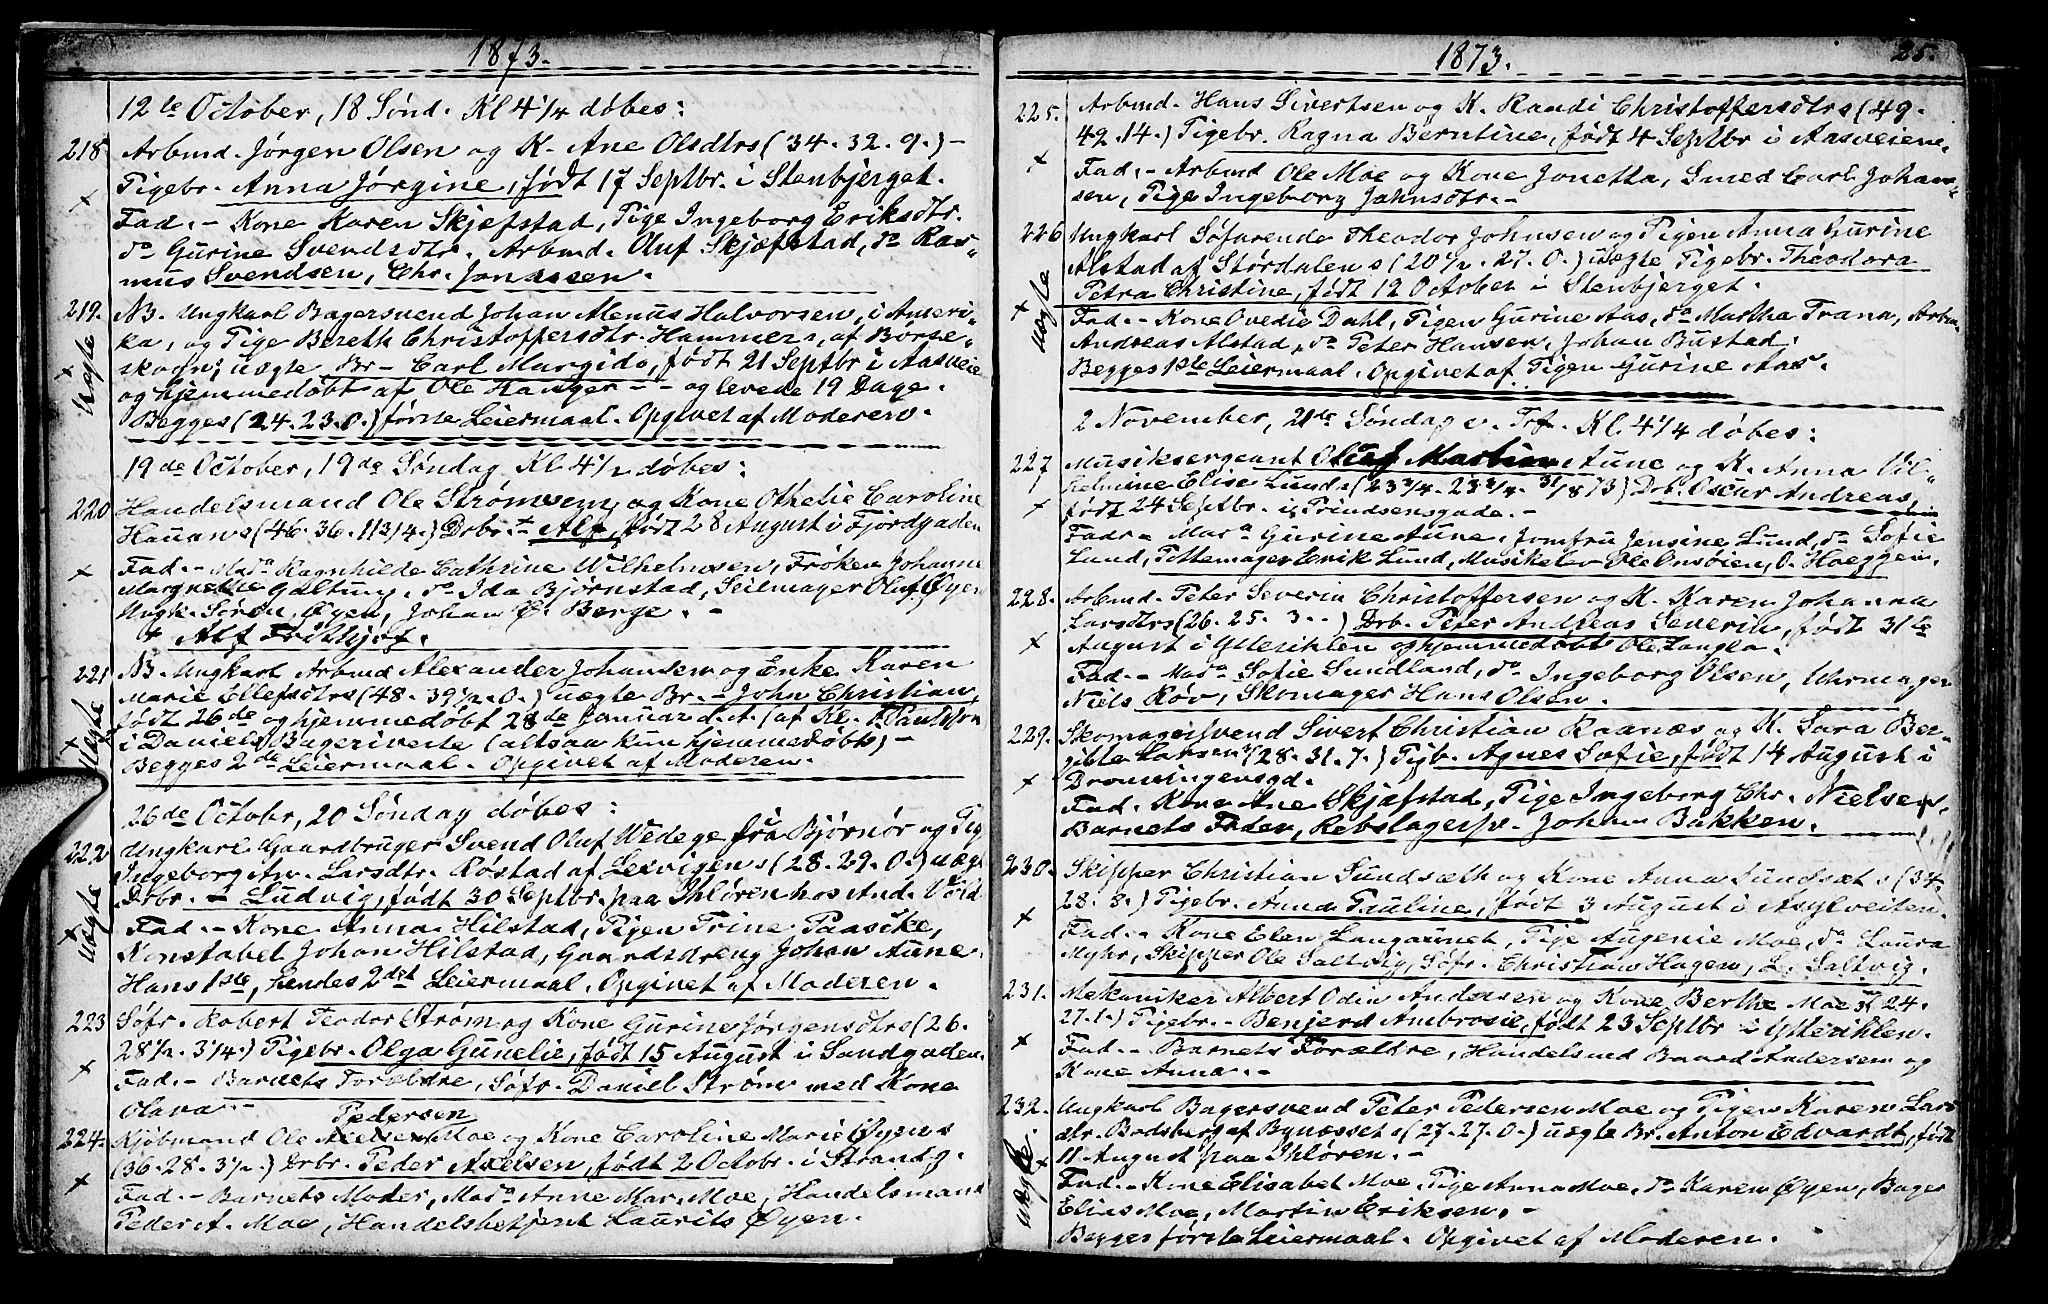 1873.
12te October, 18 Sønd. Kl 4 1/4 døbes:
218. Arbmd. Jørgen Olsen og K. Ane Olsdtrs (34. 32. 9.) –
Pigebr. Anna Jørgine, født 17 Septbr. i Stenbjerget.
Fad. – Kone Karen Skjefstad, Pige Ingeborg Eriksdtr.
do Gurine Svendsdtr. Arbmd. Oluf Skjefstad, do Ras„
mus Svendsen, Chr. Jonassen.
219. NB. Ungkarl Bagersvend Johan Menus Halvorsen, i Ameri„
ka, og Pige Bereth Christoffersdtr. Hammers, af Børse„
skogn; uægte Br – Carl Margido, født 21 Septbr i Aasveie
og hjemmedøbt af Ole Hanger – – og levede 19 Dage.
Begges (24. 23. 0.) første Leiermaal. Opgivet af Moderen.
uægte
19de October, 19de Søndag Kl 4 1/2 døbes:
220 Handelsmand Ole Strømsem og Kone Othelie Caroline
Hauans (46. 36. 11 3/4.) Drbr. + Alf, født 28 August i Fjordgaden
Fad. – Mad. Ragnhilde Cathrine Wilhelmsen, Frøken Johanne
Margrethe Galtung, do Ida Bjørnstad, Seilmager Oluf Øyen
Ungk. Søren Øyen, Johan C. Berge. –
+ Alf Frithjof.
221 NB. Ungkarl Arbmd Alexander Johansen og Enke Karen
Marie Ellefsdtrs (48. 39 1/2. 0.) uægte Br. – John Christian,
født 26de og hjemmedøbt 28de Januar d. A. (af Kl. Paulsen
i Daniels Bageriveite (altsaa kun hjemmedøbt) –
Begges 2de Leiermaal. Opgivet af Moderen.
uægte
26de Octobr, 20 Søndag døbes:
222 Ungkarl Gaardbruger Svend Oluf Wedege fra Bjørnør og Pig
Ingeborg An. Larsdtr. Røstad af Lexvigen s (28. 29. 0.) uægt
Drbr. – Ludvig, født 30 Septbr. paa Ihløren hos And. Vold
Fad. – Kone Anna Hilstad, Pigen Trine Paaske,
Konstabel Johan Hilstad, Gaardsdreng Johan Aune.
Hans 1ste, hendes 2det Leiermaal. Opgivet af Moderen.
uægte
223 Søfr. Robert Teodor Strøm og Kone Gurine Jørgensdtrs (26.
28 1/2. 3 1/4.) Pigebr. Olga Gunelie, født 15 August i Sandgaden.
Fad. – Barnets Forældre, Søfr. Daniel Strøm med Kone
Olava. –
Pedersen
224. Kjøbmand Ole Nielsen Moe og Kone Caroline Marie Øyens
(36. 28. 3 1/2.) Drbr. Peder Axelsen, født 2 Octobr. i Strandg.
Fad. – Barnets Moder, Mad. Anne Mar. Moe, Handelsmand
Peder A. Moe, Handelsbetjent Laurits Øyen.
1873.
25.
225. Arbmd. Hans Sivertsen og K. Randi Christoffersdtrs (49.
42. 14.) Pigebr. Ragna Berntine, født 4 Septbr i Aasveiene.
Fad. – Arbmd Ole Moe og Kone Jonetta, Smed Carl Johan„
sen, Pige Ingeborg Jahnsdtr. –
226 Ungkarl Søfarende Theodor Johnsen og Pigen Anna Gurine
Alstad af Størdalen s (20 1/2. 27. 0.) uægte Pigebr. Theodora
Petra Christine, født 12 October i Stenbjerget.
Fad. – Kone Ovedie Dahl, Pigen Gurine Aas, do Martha Trana, Arbm.
Andreas Alstad, do Peter Hansen, Johan Bustad.
Begges 1ste Leiermaal. Opgivet af Pigen Gurine Aas.
uægte
2 November, 21de Søndag e. Tref. Kl. 4 1/4 døbes:
227 Musiksergeant Oluf Martin Aune og K. Anna Vil„
helmine Elise Lunds (23 3/4. 23 3/4. 31/1 873) Drb. Oscar Andreas,
født 24 Septbr. i Prindsensgade. –
Fadr – Mad. Gurine Aune, Jomfru Jensine Lund, do Sofie
Lund, Pottemager Erik Lund, Musikelev Ole Onsøien, O. Hoeggen.
228. Arbmd. Peter Severin Christoffersen og K. Karen Johanna
Larsdtrs (26. 25. 3. .) Drb. Peter Andreas Severin, født 31te
August i Ytteriklen og hjemmedøbt Ole Langla.
Fad. – Mad. Sofie Sundland, do Ingeborg Olsen, Uhrmager
Niels Røv, Skomager Hans Olsen.
229. Skomagersvend Sivert Christian Raanæs og K. Sara Ber„
gitte Larsens (28. 31. 7.) Pigb. Agnes Sofie, født 14 August i
Dronningensgd.
Fad. Kone Ane Skjefstad, Pige Ingeborg Chr. Nielsen,
Barnets Fader, Rebslagersv. Johan Bakken.
230. Skipper Christian Sundsæth og Kone Anna Sundsæt s (34.
28. 8.) Pigebr. Anna Pauline, født 3 August i Asylveiten.
Fad. – Kone Elen Langaunet, Pige Augenie Moe, do Laura
Myhr, Skipper Ole Saltvig, Søfr. Christian Hagen, L. Saltvig.
231. Mekaniker Albert Odin Andersen og Kone Berthe Moe s (24.
27. 1.) Pigebr. – Benjerd Ambrosie, født 23 Septbr i Ytteriklen.
Fad. – Barnets Forældre, Handelsmd Baard Andersen og
Kone Anna. –
232. Ungkarl Bagersvend Peter Pedersen Moe og Pigen Karen Lars
dtr. Badsberg af Bynæsset s (27. 27. 0.) uægte Br. Anton Edvardt, født
11 August paa Ihløren. –
Fad. – Kone Elisabet Moe, Pige Anna Moe, do Karen Øyen, Bager
Elias Moe, Martin Eriksen. –
Begges første Leiermaal. Opgivet af Moderen.
uægte